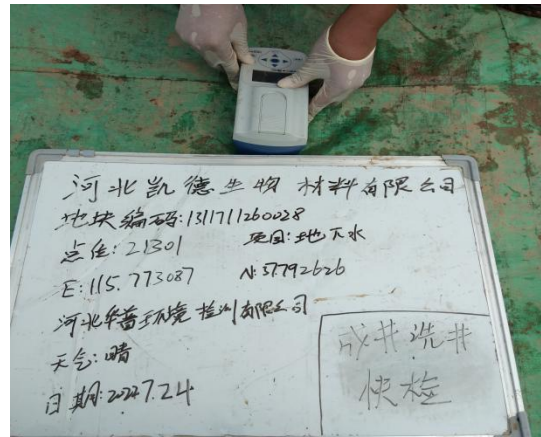 河北凯德生物材料有限公司
地块编码:1311711260028
点位:21301 项目:地下水
E:115.773087 N:37.792626
河北华普环境检测有限公司
天气:晴
日期:2024.7.24
成井洗井
快检